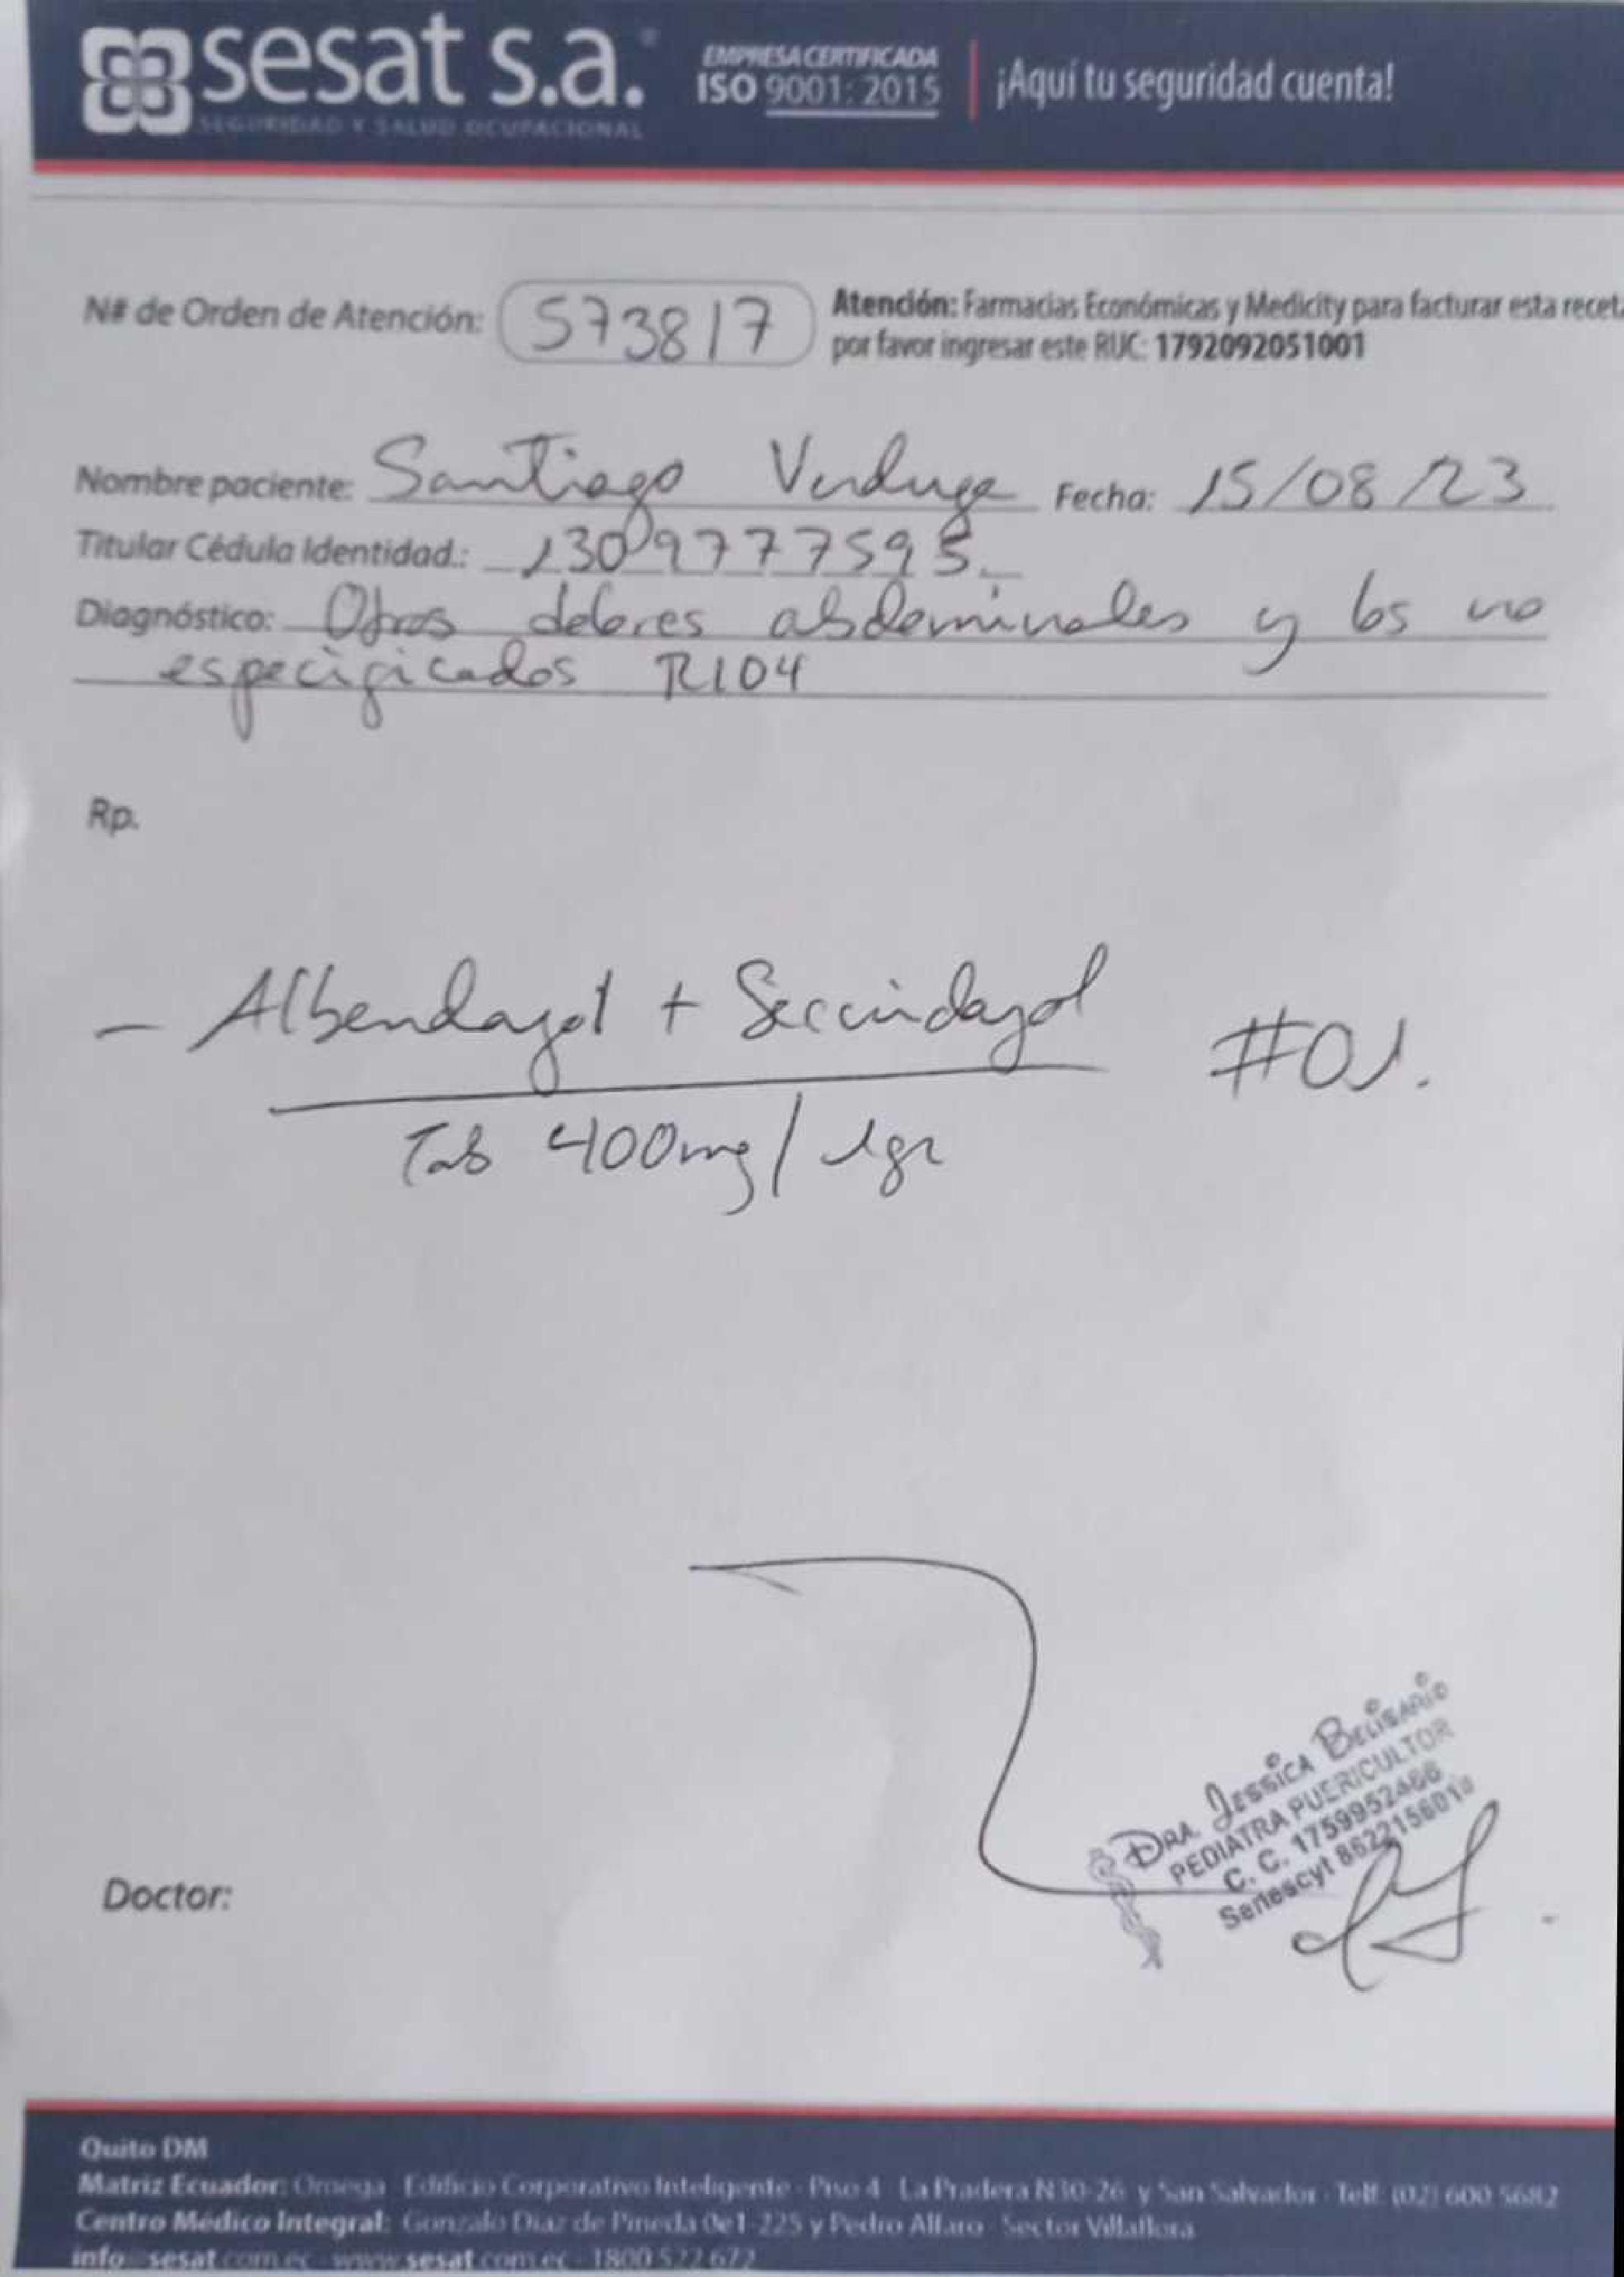 sesat s.a.
SEGURIDAD Y SALUD OCUPACIONAL
EMPRESA CERTIFICADA
ISO 9001: 2015
¡Aquí tu seguridad cuenta!
N# de Orden de Atención: 573817
Atención: Farmacias Económicas y Medicity para facturar esta receta
por favor ingresar este RUC: 1792092051001
Nombre paciente: Santiago Verduga Fecha: 15/08/23
Titular Cédula Identidad.: 1309777595
Diagnóstico: Otros dolores abdominales y los no
especificados R104
Rp.
- Albendazol + Secnidazol #01.
Tab 400mg / 1gr
DRA. JESSICA BELISARIO
PEDIATRA PUERICULTOR
C. C. 1759952466
Senescyt
Doctor:
Quito DM
Matriz Ecuador: Omega Edificio Corporativo Inteligente - Piso 4 La Pradera N30-26 y San Salvador - Telf: (02) 600 5682
Centro Médico Integral: Gonzalo Diaz de Pineda 0e1-225 y Pedro Alfaro - Sector Villaflora
info sesat.com.ec - www.sesat.com.ec - 1800 522 672